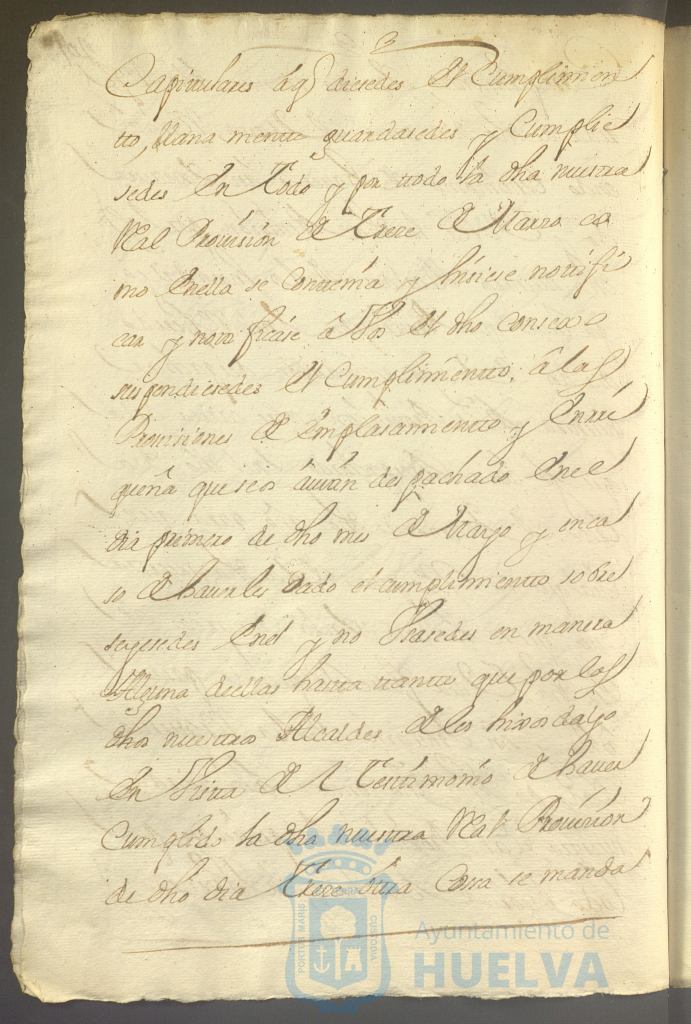 Capitulares aqᵉ diesedes el Cumplimien
tto, llana mentte guardasedes y Cumplie
sedes En Todo y por ttodo la dha nuestra
Real Provisión de Trece de Marzo co
mo Enella se Contenia y hisiese nottifi
car y nottificase â Vos el dho consexo
suspendiesedes el Cumplimientto, â las
Provisiones de Emplasamientto y
que seos avian despachado Enel
dia primero de dho mes de Marzo y enca
so de haverles dado el cumplimientto sobre
seyesedes Enel y no Vsasedes en manera
Alguna deellas hasta ttantto que por los
dhos nuestros Alcaldes de los hijos dalgo
En Vista del Testimonio de haver
Cumplido la dha nuestra Real Provisión
de dho dia Trece ottra Cosa se manda
PORTUS MARIS
CUSTODIA
Ayuntamiento de
HUELVA